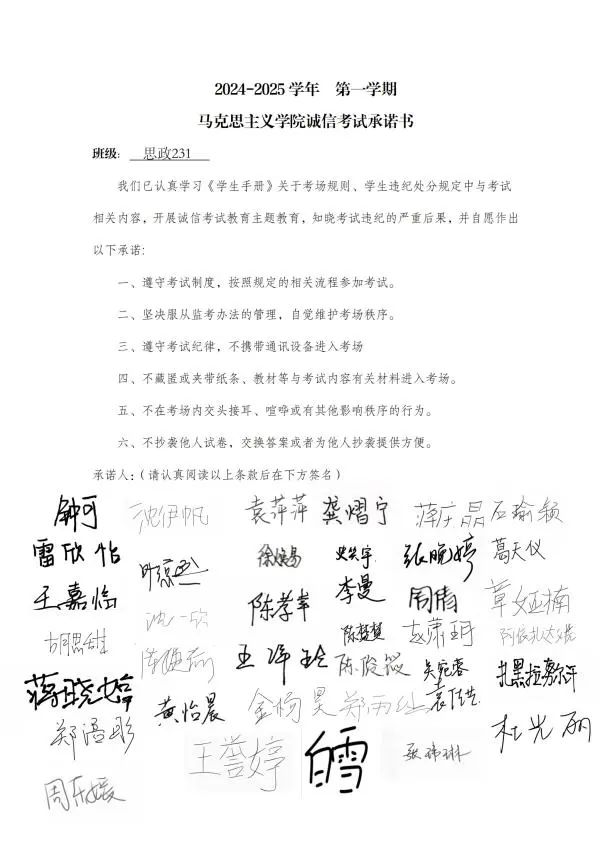 2024-2025学年 第一学期
马克思主义学院诚信考试承诺书
班级： 思政231
我们已认真学习《学生手册》关于考场规则、学生违纪处分规定中与考试
相关内容，开展诚信考试教育主题教育，知晓考试违纪的严重后果，并自愿作出
以下承诺:
一、遵守考试制度，按照规定的相关流程参加考试。
二、坚决服从监考办法的管理，自觉维护考场秩序。
三、遵守考试纪律，不携带通讯设备进入考场
四、不藏匿或夹带纸条、教材等与考试内容有关材料进入考场。
五、不在考场内交头接耳、喧哗或有其他影响秩序的行为。
六、不抄袭他人试卷，交换答案或者为他人抄袭提供方便。
承诺人:（请认真阅读以上条款后在下方签名）
钟可 沈伊帆 袁萍萍 龚熠宁 石瑜颖
雷欣怡 张晚婷 葛天仪
王嘉临 沈一欣 陈孝芊 李曼 周倩
胡思甜 赵萧玥
蒋晓婷 黄怡晨 吴宛蓉 扎黑拉努尔汗
郑语彤 杜光丽
周乐媛 王誉婷 白雪 张琳琳